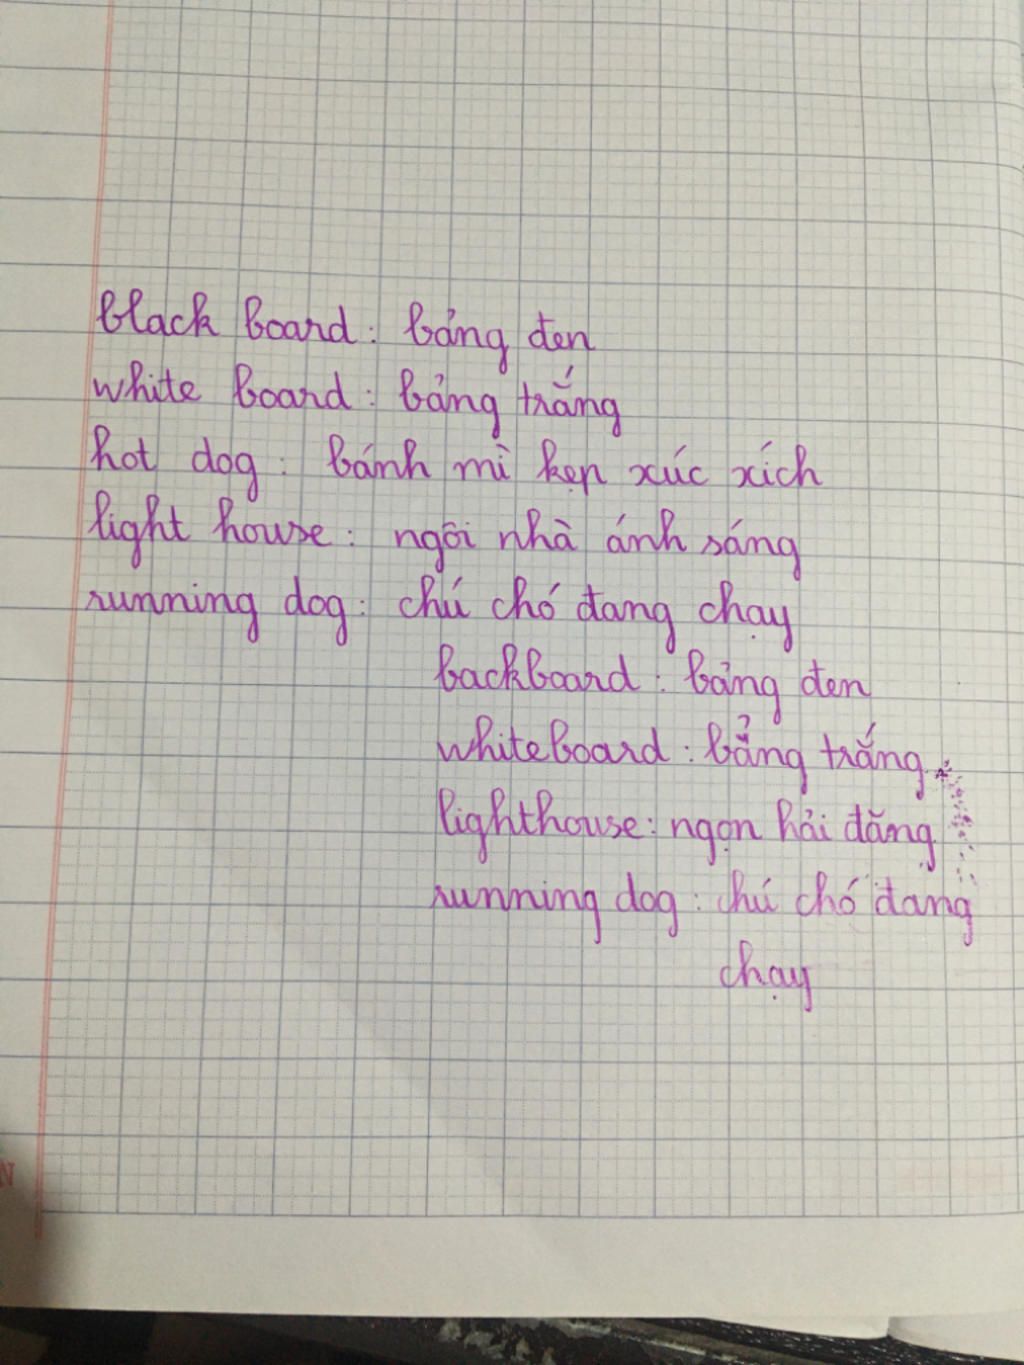 black board: bảng đen
white board: bảng trắng
hot dog: bánh mì kẹp xúc xích
light house: ngôi nhà ánh sáng
running dog: chú chó đang chạy
backboard: bảng đen
whiteboard: bảng trắng
lighthouse: ngọn hải đăng
running dog: chú chó đang
chạy
N